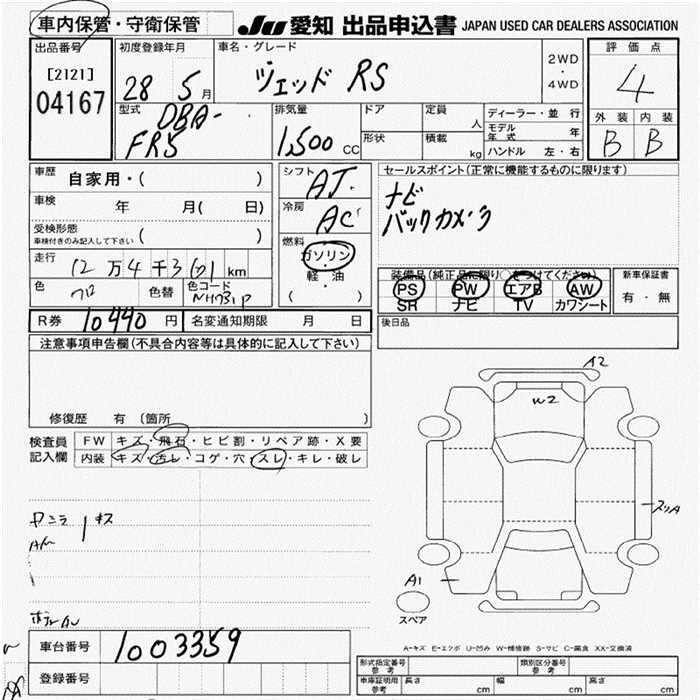 車内保管・守衛保管
JU 愛知 出品申込書 JAPAN USED CAR DEALERS ASSOCIATION
出品番号 [2121] 04167
初度登録年月 28 5月
車名・グレード ヴェゼル RS
2WD・4WD
評価点 4
外装 内装
B B
型式 DBA-
FR5
排気量 1,500 CC
ドア
形状
定員 人
積載 kg
ディーラー・並行
モデル年式 年
ハンドル 左・右
車歴 自家用・( )
車検 年 月( 日)
受検形態
車検付きのみ記入して下さい ( )
走行 12万4千361km
色 クロ 色替 色コード NH731P
シフト AT
冷房 AC
燃料 ガソリン・軽油
( )
セールスポイント(正常に機能するものに限ります)
ナビ
バックカメラ
装備品(純正品に限り○をつけてください)
PS PW エアB AW
SR ナビ TV カワシート
新車保証書
有・無
R券 10,440円 名変通知期限 月 日
後日品
注意事項申告欄(不具合内容等は具体的に記入して下さい)
修復歴 有(箇所 )
検査員記入欄
FW キズ・飛石・ヒビ割・リペア跡・X要
内装 キズ・汚レ・コゲ・穴・スレ・キレ・破レ
キズ
A2
W2
A1
スペア
A-キズ E-エクボ U-凹み W-補修跡 S-サビ C-腐食 XX-交換済
車台番号 1003359
登録番号
形式指定番号 参考
類別区分番号 参考
車庫証明用 参考 長さ cm 幅 cm 高さ cm